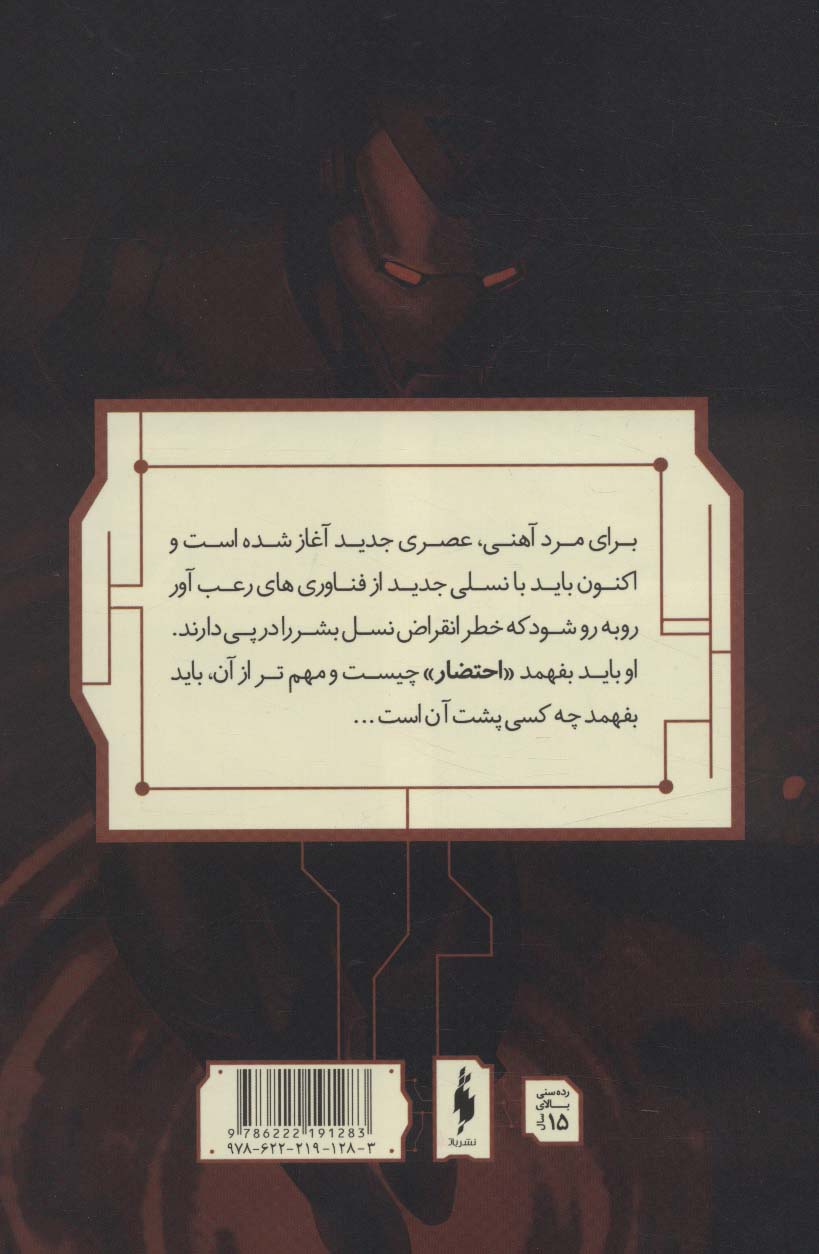 برای مرد آهنی، عصری جدید آغاز شده است و
اکنون باید با نسلی جدید از فناوری های رعب آور
روبه رو شود که خطر انقراض نسل بشر را در پی دارند.
او باید بفهمد «احتضار» چیست و مهم تر از آن، باید
بفهمد چه کسی پشت آن است...
رده سنی
بالای
۱۵ سال
نشر باژ
9 786222 191283
۹۷۸-۶۲۲-۲۱۹-۱۲۸-۳